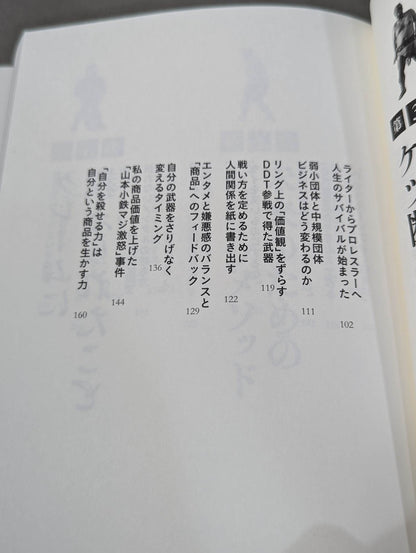 ライターからプロレスラーへ
人生のサバイバルが始まった
102
弱小団体と中規模団体
ビジネスはどう変わるのか
111
リング上の「価値観」をずらす
DDT参戦で得た武器
119
戦い方を定めるために
人間関係を紙に書き出す
122
エンタメと嫌悪感のバランスと
「商品」へのフィードバック
129
自分の武器をさりげなく
変えるタイミング
136
私の商品価値を上げた
「山本小鉄マジ激怒」事件
144
「自分を殺せる力」は
自分という商品を生かす力
160